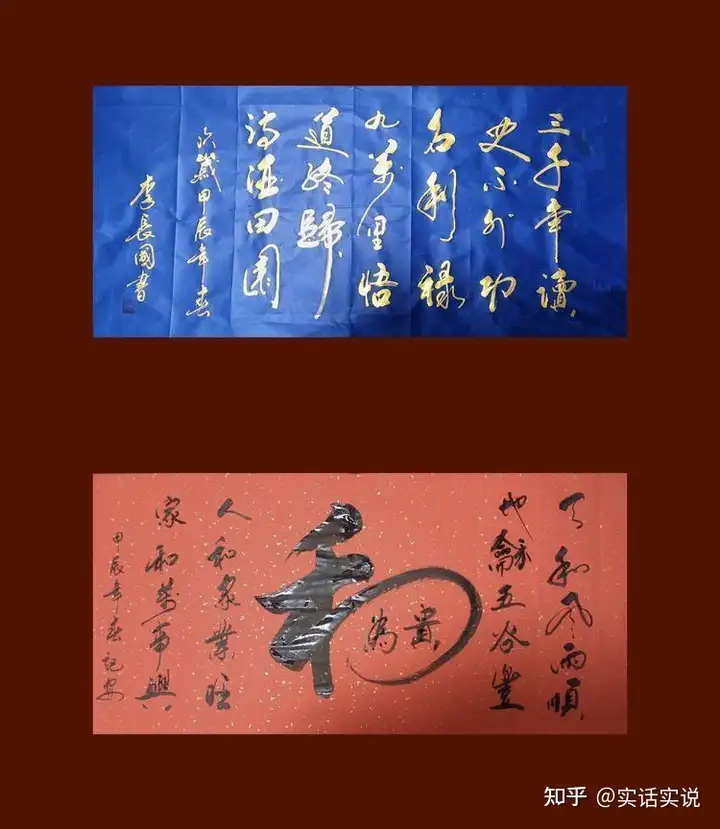 三千年讀
史不外功
名利禄
九萬里悟
道终歸
诗酒田園
歲甲辰年春
李長國書
天和风雨順
地龢五谷豐
和
為貴
人和家業旺
家和萬事興
甲辰年春記
知乎 @实话实说